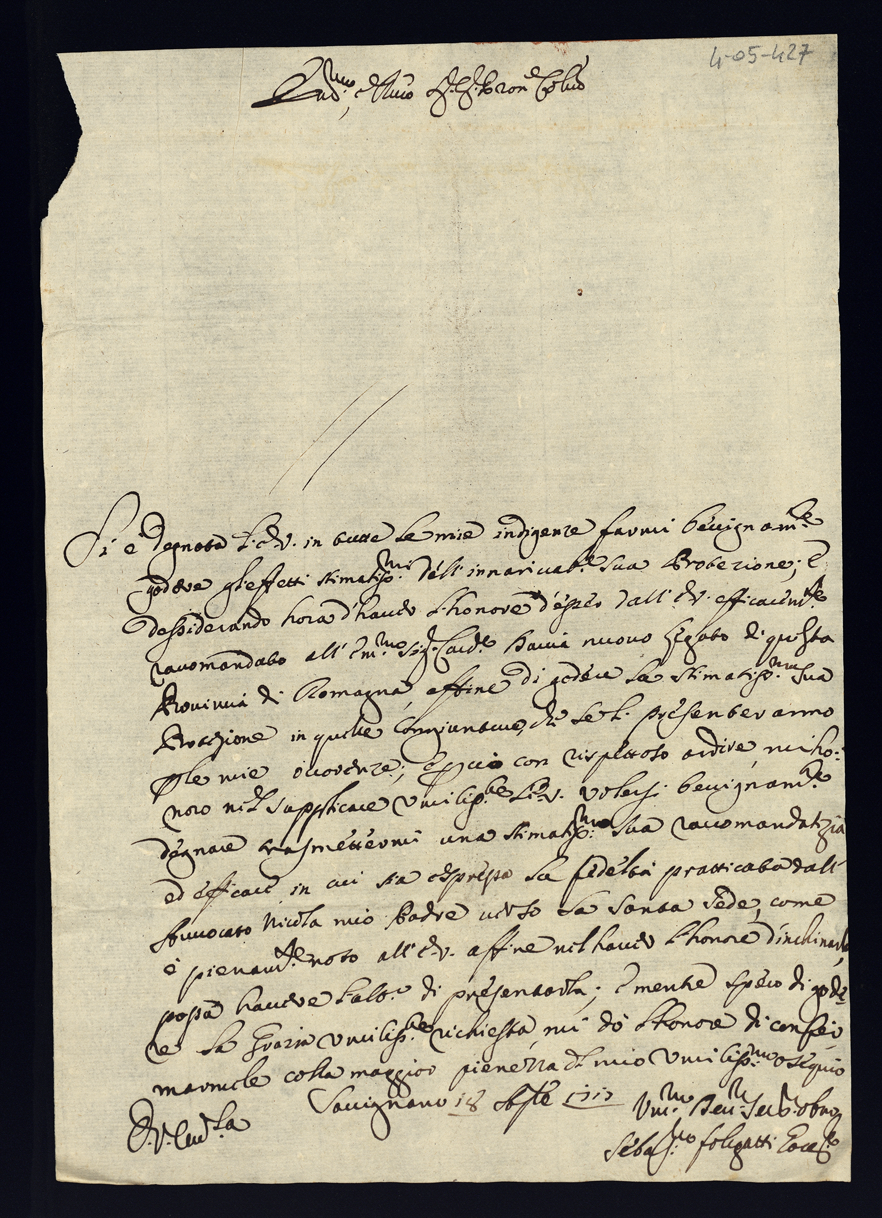 4-05-427
Em.mo, e R.mo Sig.r Sig.r Pron.e Col.mo
Si è degnata L'E.V. in tutte le mie indigenze farmi benignam.te
godere gl'effetti stimatiss.mi dell'innarivab.e sua Protezione; E
dessiderando hora d'haver l'honore d'esser dall'E.V. efficacem.te
racomandato all'Em.mo Sig.r Card.e nuovo Legato di questa
Provincia di Romagna, affine di godere la stimatiss.ma sua
Protezione in quelle congiunture, che se li presenteranno
p le mie ocorenze; E p ciò con rispettoso ardire, mi ho-
noro nel supplicare umiliss.te L'E.V. volersi benignam.te
degnare trasmettermi una stimatiss.ma sua racomandatizia
ed efficace in cui sia espressa la fideltà pratticata dall'
Avvocato Nicola mio Padre verso la Santa Sede, come
è pienam.te noto all'E.V. affine nel haver l'honore d'inchinarlo,
possa havere l'alt.o di presentarla; E mentre spero di gode-
re la Grazia umiliss.te richiesta, mi dò l'honore di confir-
marmele colla maggior pienezza del mio umiliss.mo osequio
D.V. Em.za Savignano 18 7bre 1717
Um.mo Dev.mo Ser.re Obb.mo
Sebast.no foligatti